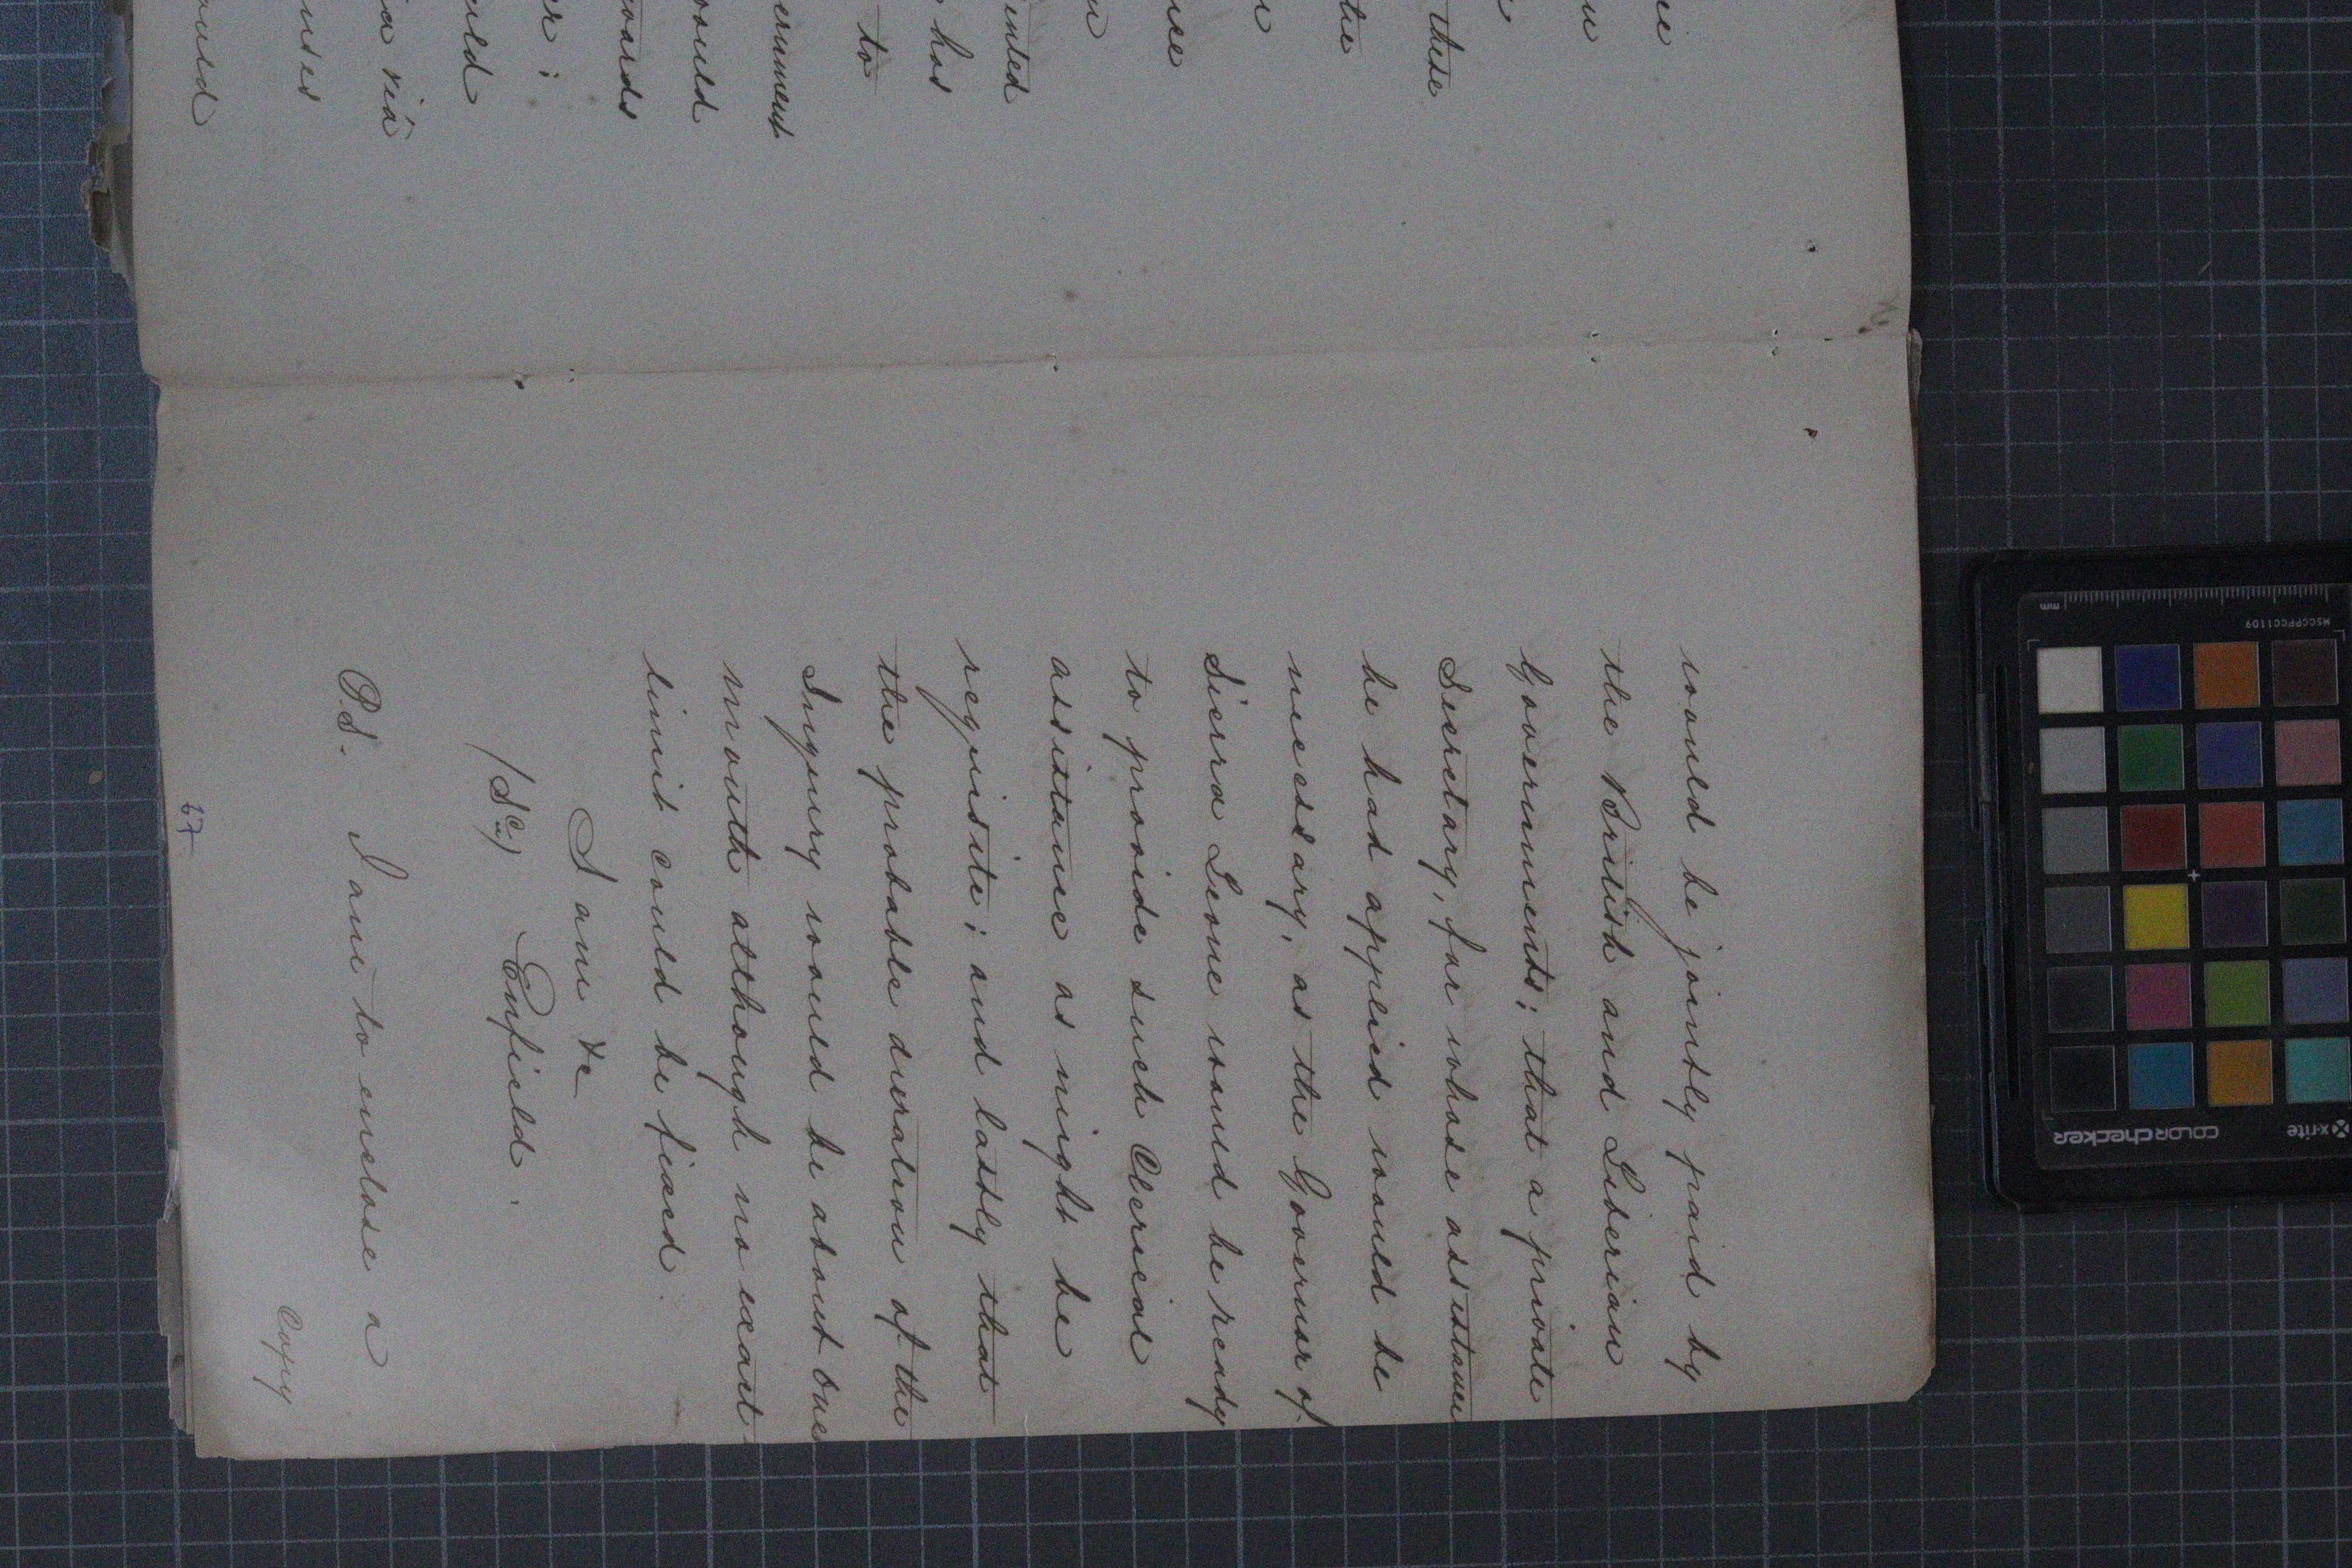 these
the
inted
has
to
ernment
would
wards
er;
uld
ia viâ
nses
ould
would be jointly paid by
the British and Liberian
Governments; that a private
Secretary, for whose assistance
he had applied would be
necessary, as the Governor of
Sierra Leone would be ready
to provide such Clerical
assistance as might be
requisite; and lastly that
the probable duration of the
Inquiry would be about one
month although no exact
limit could be fixed.
I am &c
(Sd.) Enfield.
P.S. I am to enclose a
Copy
67
mm
MSCCPPCC1109
x-rite
COLORchecker